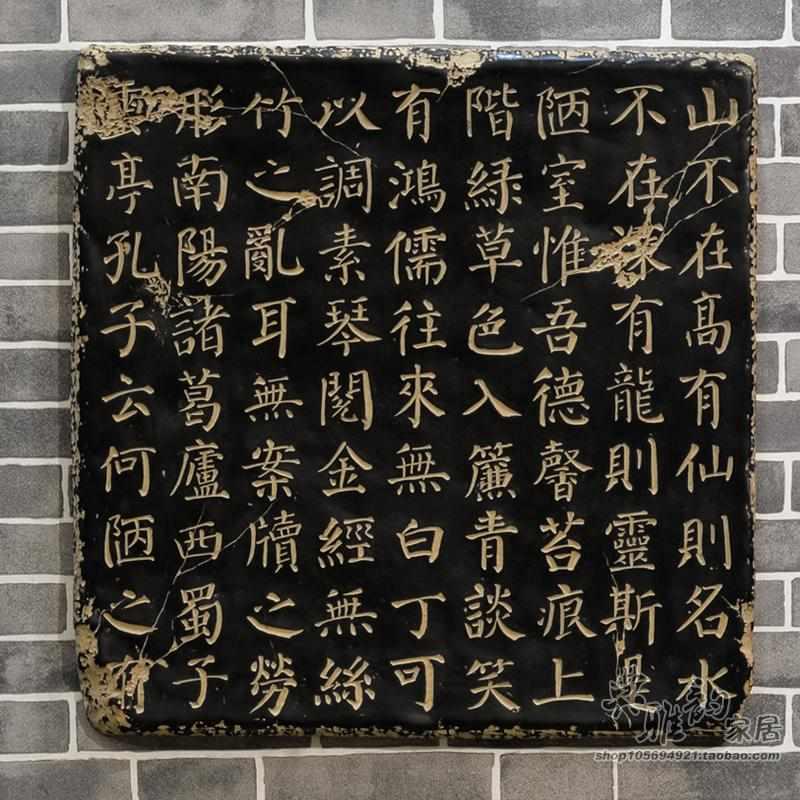 山不在高有仙則名水
不在深有龍則靈斯是
陋室惟吾德馨苔痕上
階綠草色入簾青談笑
有鴻儒往來無白丁可
以調素琴閱金經無絲
竹之亂耳無案牘之勞
形南陽諸葛廬西蜀子
雲亭孔子云何陋之有
雅韵家居
shop105694921.taobao.com